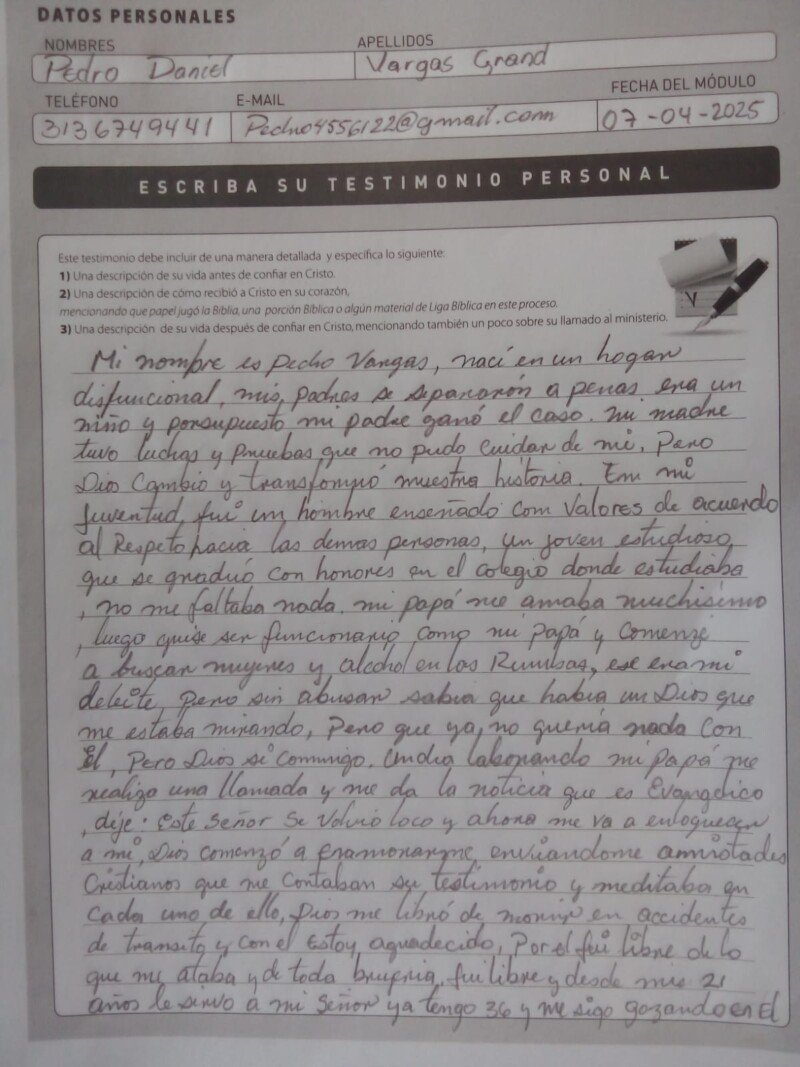 DATOS PERSONALES
NOMBRES APELLIDOS
Pedro Daniel Vargas Grand
TELÉFONO E-MAIL FECHA DEL MÓDULO
3136749441 Pedro4556122@gmail.com 07-04-2025
ESCRIBA SU TESTIMONIO PERSONAL
Este testimonio debe incluir de una manera detallada y específica lo siguiente:
1) Una descripción de su vida antes de confiar en Cristo.
2) Una descripción de cómo recibió a Cristo en su corazón,
mencionando que papel jugó la Biblia, una porción Bíblica o algún material de Liga Bíblica en este proceso.
3) Una descripción de su vida después de confiar en Cristo, mencionando también un poco sobre su llamado al ministerio.
Mi nombre es Pedro Vargas, nací en un hogar
disfuncional, mis padres se separarón a penas era un
niño y porsupuesto mi padre ganó el caso. mi madre
tuvo luchas y pruebas que no pudo cuidar de mi, Pero
Dios Cambio y transformó nuestra historia. En mi
juventud, fui un hombre enseñado con Valores de acuerdo
al Respeto hacia las demas personas, un joven estudioso
que se graduó con honores en el colegio donde estudiaba
, no me faltaba nada. mi papá me amaba muchisimo
, luego quise ser funcionario como mi papá y comenzé
a buscar mujeres y alcohol en las Rumbas, ese era mi
deleite, pero sin abusar sabia que habia un Dios que
me estaba mirando, Pero que ya, no queria nada Con
Él, Pero Dios si Conmigo. Undia laborando mi papá me
realiza una llamada y me da la noticia que es Evangelico
, dije: Este Señor Se Volvio loco y ahora me va a enloquecer
a mi, Dios comenzó a Enamorarme, enviandome amistades
Cristianos que me Contaban su testimonio y meditaba en
Cada uno de ello, Dios me libró de morir en accidentes
de transito y con el Estoy agradecido, Por el fui libre de lo
que me ataba y de toda brujeria, fui libre y desde mis 21
años le sirvo a mi Señor ya tengo 36 y me sigo gozando en El